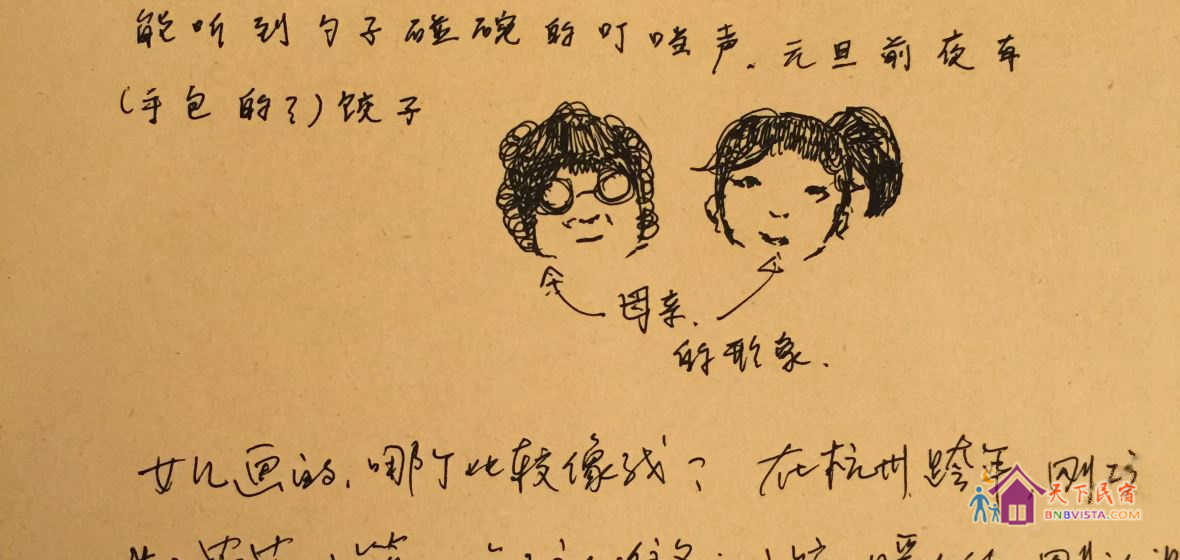 能听到勺子碰碗的叮噹声。元旦前夜有
(手包的?)饺子
母亲.
的形象.
女儿画的,哪个比较像我? 在杭州跨年,刚
天下民宿
BNBVISTA.COM